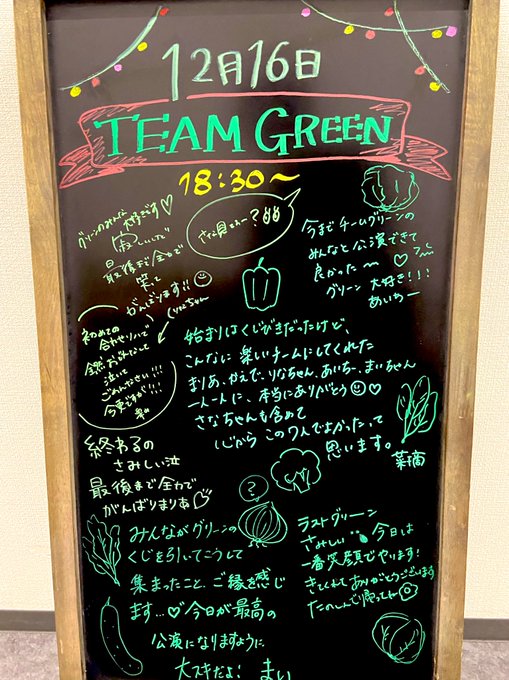 12月16日
TEAM GREEN
18:30〜
グリーンのみんな
大好きです♡
寂しいけど
最後まで全力で
笑って
がんばります!!
りなちゃん
今までチームグリーンの
みんなと公演できて
良かった〜
グリーン 大好き!!!
あいめー
初めての
合わせリハで
全然お話なくて
泣いて
ごめんなさい!!!
今更ですが!!!
始まりはくじびきだったけど、
こんなに楽しいチームにしてくれた
まりあ、かえで、りなちゃん、あいち、まいちゃん
一人一人に、本当にありがとう♡
さなちゃんも含めて
心から この7人でよかったって
思います。
菜摘
終わるの
さみしい泣
最後まで全力で
がんばりまりあ♡
?
みんながグリーンの
くじを引いてこうして
集まったこと、ご縁を感じ
ます...♡今日が最高の
公演になりますように
大スキだよ! まい
ラストグリーン
さみしい 今日は
一番笑顔でやります!
きてくれてありがとうございます
たのしんで帰ってね